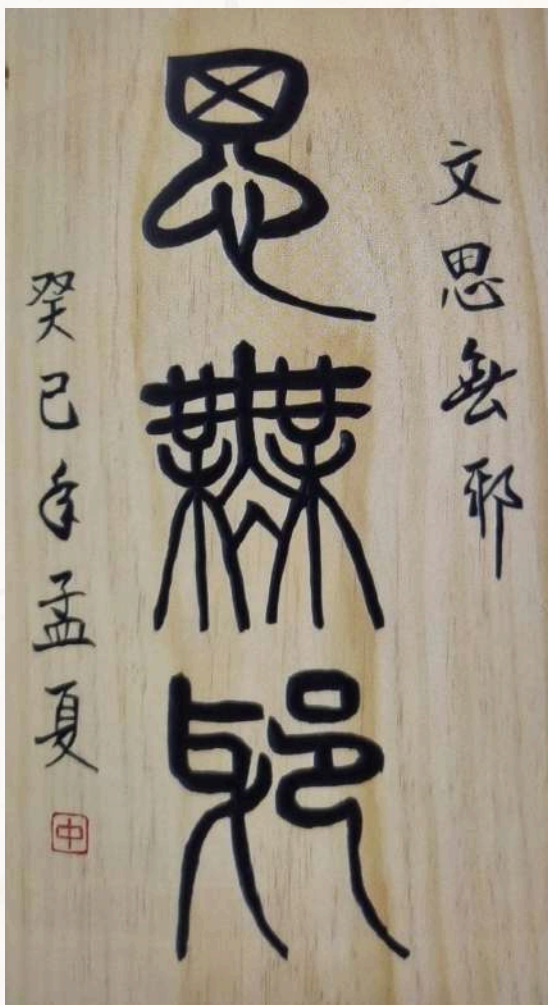 文思無邪
思無邪
癸巳年孟夏
中